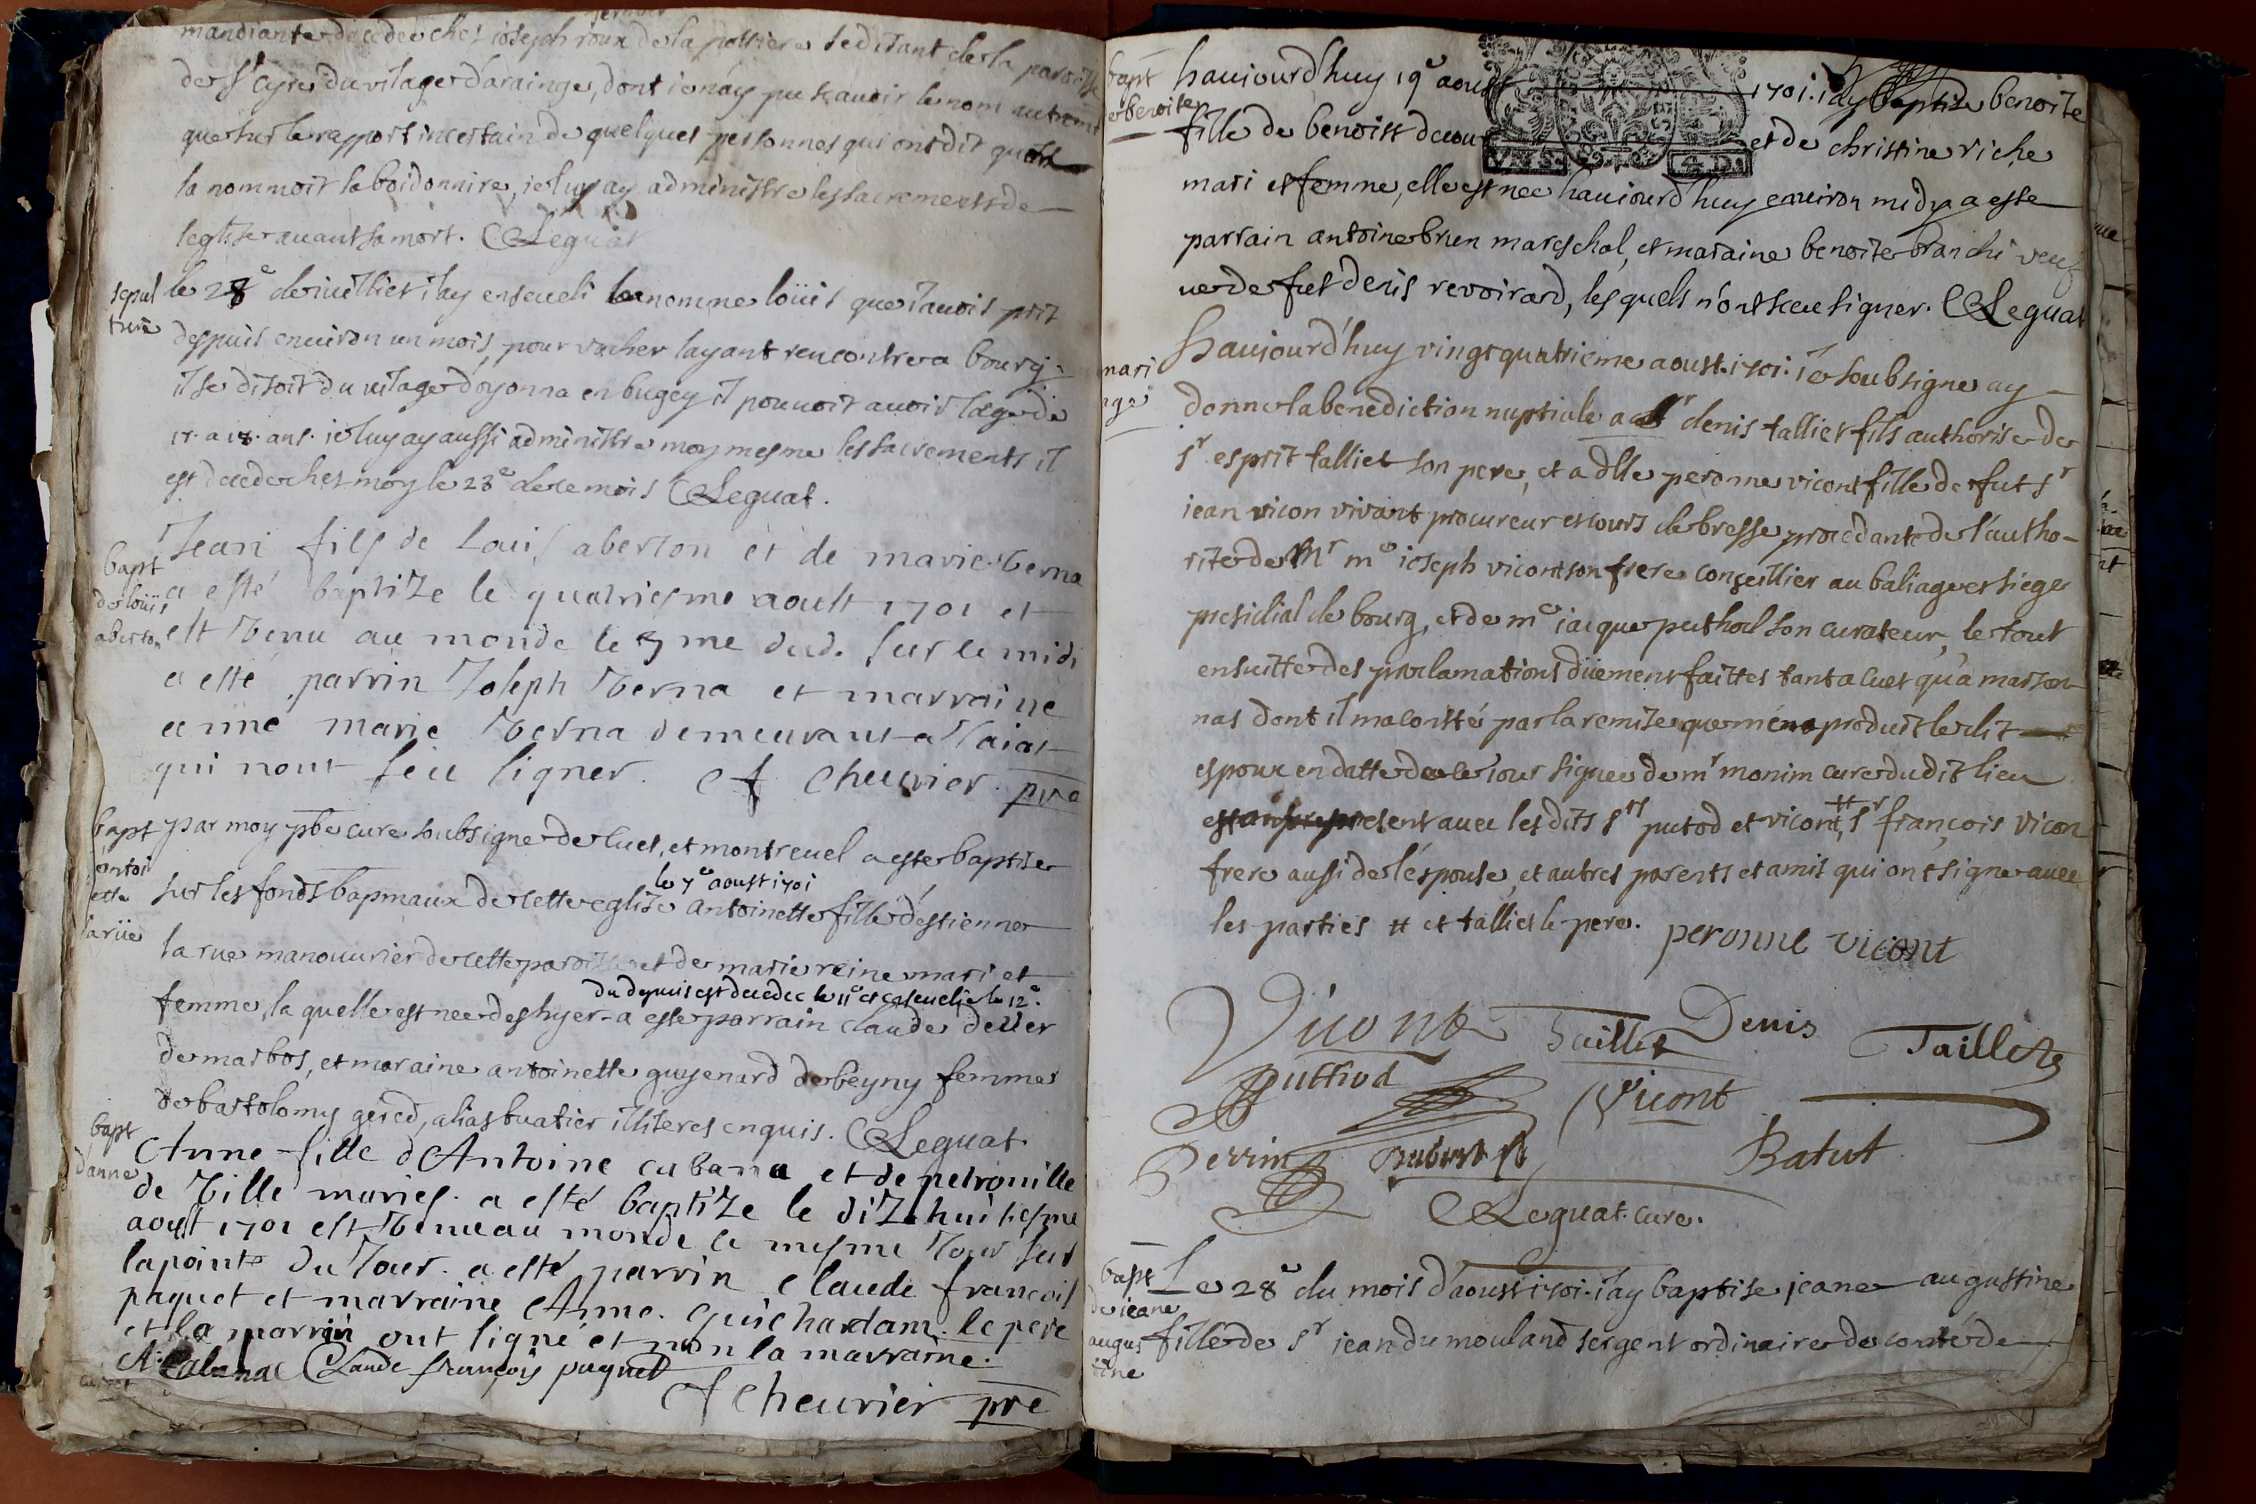 mandiante decedée ches ioseph roux de la possiere se disant de la paroisse
de st cyre du vilage d'arainge, dont ie n'ay pu scauoir le nom autrem̃t
que sur le rapport incertain de quelques personnes qui ont dit
la nommoit la boidonnire, ie luy ay administre les sacrements de
l'eglise auant sa mort. Leguat
sepul
ture
le 28e de iuilliet i'ay enseueli le nomme loüis que i'auois prit
despuis enuiron un mois, pour vacher layant rencontre a bourg
il se disoit du uilage d'oyonna en bugey il pouuoit auoir l'age de
17. a 18. ans. ie luy ay aussi administre moy mesme les sacrements il
est decede ches moy le 28e de ce mois Leguat.
bapt
de loüis
aberson
Jean fils de Louis aberson et de marie verna
a esté baptize le quatriesme aoust 1701 et
est venu au monde le 3me dud. sur le midi
a esté parrin Joseph verna et marraine
anne marie verna demeurant a
qui nont sceu signer. A cheurier. pre
bapt
antoi
ette
larüe
par moy pbre cure soubsigne de cuet, et montreuel a este baptise
le 7e aoust 1701
sur les fonds bapmaux de cette eglise antoinette fille d'estienne
la rue manouurier de cette paroisse et de marie reine mari et
du depuis est decedee le 11e et enseuelie le 12e.
femme, la quelle est nee des hyer a este parrain claude deuer
de marbos, et maraine antoinette guyenard de beyny femme
de bartolomy gered, alias buatier illiteres enquis. Leguat
bapt
d'anne
Anne fille d'Antoine cabana et de petronille
de Ville maries. a esté baptize le dizhuitiesme
aoust 1701 est venue au monde le mesme Jour sur
la pointe du Jour. a esté parrin Claude francois
paquet et marraine Anne. Guichardam. le pere
et le parrin ont signé et non la marraine.
A. Cabana Claude françois paquet
A Cheurier pre
bapt
de benoite
haujourd'huy 19e aoust 1701. i'ay baptize benoite
fille de benoist et de christine riche
VN S. 4 D.
mari et femme, elle est nee haujourd'huy enuiron midy a este
parrain antoine brun mareschal, et maraine benoite branchi veuf
ue de fut denis revoirard, les quels n'ont sceu signer. Leguat
mari
age
haujourd'huy vingt quatrieme aoust. 1701. ie soubsigne ay
donne la benediction nuptiale a sr denis talliet fils authorise de
sr esprit talliet son pere, et a dlle peronne vicont fille de fut sr
jean vicon vivant procureur es cours de bresse procedante de l'autho-
rite de Mr me ioseph vicont son frere conseillier au baliage et siege
presidial de bourg, et de me iacque puthod son curateur, le tout
ensuitte des proclamations düement faittes tant a cuet qu'a marson
nas dont il ma consté par la remise que men a produit ledit
espoux en datte de ce iour signee de mr monim cure dudit lieu
present auec les dits srs putod et vicont, # sr françois vicon
frere aussi de l'espouse, et autres parents et amis qui ont signe auec
les parties # et talliet le pere. peronne vicont
Vicont Taillet Denis Tailletz
Putthod Vicont
Perrin Batut
Leguat. cure.
bapt
de ieane
augus
tine
Le 28e du mois d'aoust 1701. i'ay baptise jeane augustine
fille de sr jean du mouland sergent ordinaire de comté de